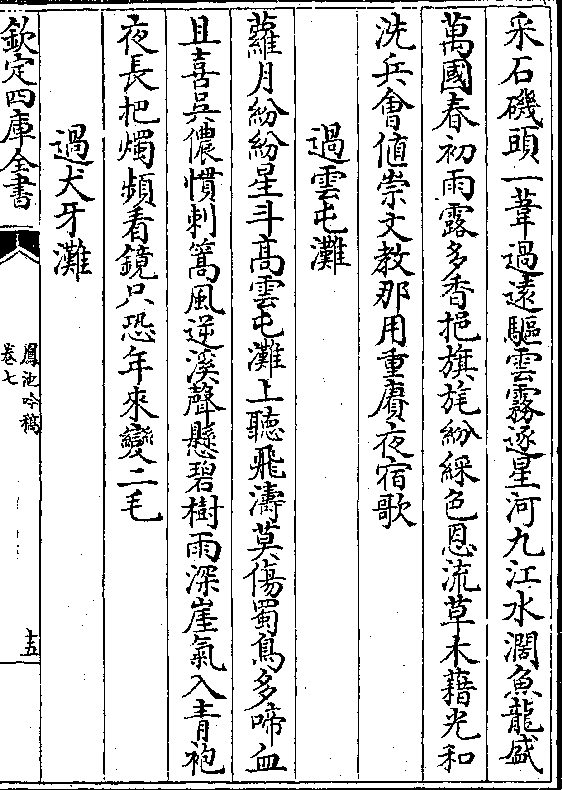 采石磯頭一葦過遠驅雲霧逐星河九江水濶魚龍盛
萬國春初雨露多香挹旗旄紛綵色恩流草木藉光和
洗兵會值崇文教那用重賡夜宿歌
過雲屯灘
蘿月紛紛星斗高雲屯灘上聽飛濤莫傷蜀鳥多啼血
且喜吳儂慣刺篙風逆溪聲懸碧樹雨深崖氣入青袍
夜長把燭頻看鏡只恐年來變二毛
過犬牙灘
欽定四庫全書
鳳池吟稿
卷七
十五